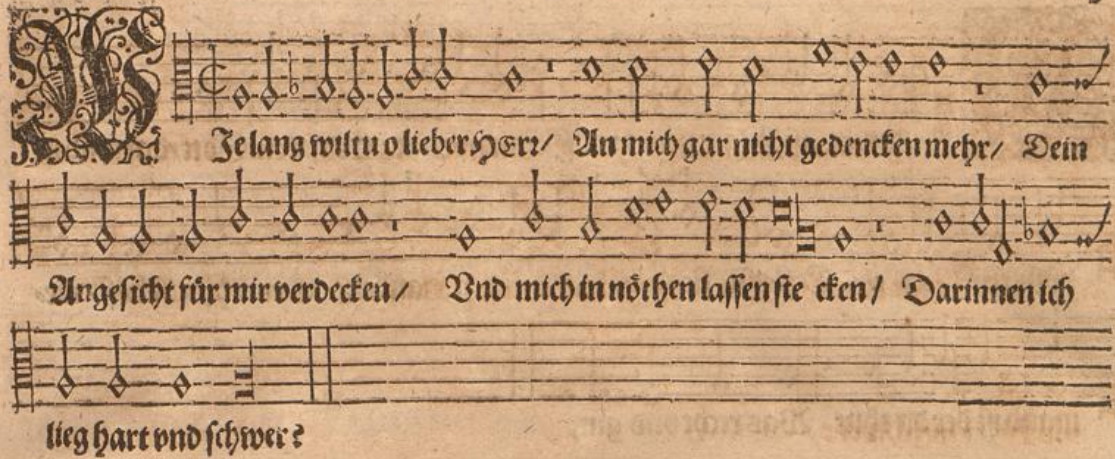 WJe lang wiltu o lieber HErr/ An mich gar nicht gedencken mehr/ Dein
Angesicht für mir verdecken/ Vnd mich in nöthen lassen ste cken/ Darinnen ich
lieg hart vnd schwer?